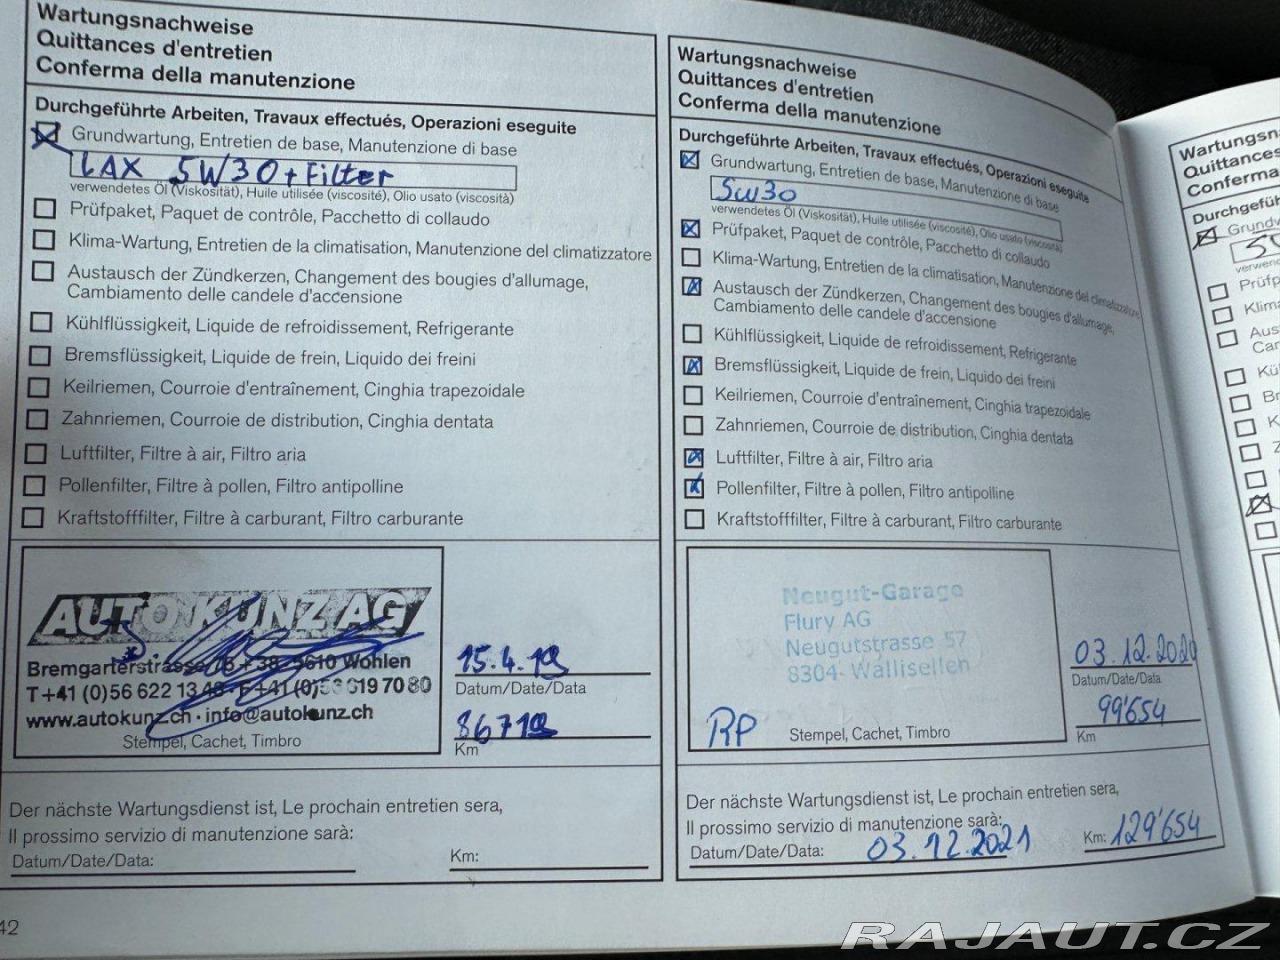 Wartungsnachweise
Quittances d'entretien
Conferma della manutenzione
Durchgeführte Arbeiten, Travaux effectués, Operazioni eseguite
Grundwartung, Entretien de base, Manutenzione di base
LAX 5W30+Filter
verwendetes Öl (Viskosität), Huile utilisée (viscosité), Olio usato (viscosità)
Prüfpaket, Paquet de contrôle, Pacchetto di collaudo
Klima-Wartung, Entretien de la climatisation, Manutenzione del climatizzatore
Austausch der Zündkerzen, Changement des bougies d'allumage,
Cambiamento delle candele d'accensione
Kühlflüssigkeit, Liquide de refroidissement, Refrigerante
Bremsflüssigkeit, Liquide de frein, Liquido dei freini
Keilriemen, Courroie d'entraînement, Cinghia trapezoidale
Zahnriemen, Courroie de distribution, Cinghia dentata
Luftfilter, Filtre à air, Filtro aria
Pollenfilter, Filtre à pollen, Filtro antipolline
Kraftstofffilter, Filtre à carburant, Filtro carburante
AUTO KUNZ AG
Bremgarterstrasse 75 + 38, 5610 Wohlen
T+41 (0)56 622 13 48 · F+41 (0)56 619 70 80
www.autokunz.ch · info@autokunz.ch
Stempel, Cachet, Timbro
15.4.19
Datum/Date/Data
86719
Km
Der nächste Wartungsdienst ist, Le prochain entretien sera,
Il prossimo servizio di manutenzione sarà:
Datum/Date/Data:
Km:
42
Wartungsnachweise
Quittances d'entretien
Conferma della manutenzione
Durchgeführte Arbeiten, Travaux effectués, Operazioni eseguite
Grundwartung, Entretien de base, Manutenzione di base
5W30
verwendetes Öl (Viskosität), Huile utilisée (viscosité), Olio usato (viscosità)
Prüfpaket, Paquet de contrôle, Pacchetto di collaudo
Klima-Wartung, Entretien de la climatisation, Manutenzione del climatizzatore
Austausch der Zündkerzen, Changement des bougies d'allumage,
Cambiamento delle candele d'accensione
Kühlflüssigkeit, Liquide de refroidissement, Refrigerante
Bremsflüssigkeit, Liquide de frein, Liquido dei freini
Keilriemen, Courroie d'entraînement, Cinghia trapezoidale
Zahnriemen, Courroie de distribution, Cinghia dentata
Luftfilter, Filtre à air, Filtro aria
Pollenfilter, Filtre à pollen, Filtro antipolline
Kraftstofffilter, Filtre à carburant, Filtro carburante
Neugut-Garage
Flury AG
Neugutstrasse 57
8304 Wallisellen
RP
Stempel, Cachet, Timbro
03.12.2020
Datum/Date/Data
99'654
Km
Der nächste Wartungsdienst ist, Le prochain entretien sera,
Il prossimo servizio di manutenzione sarà:
Datum/Date/Data: 03.12.2021
Km: 129'654
Wartungsn
Quittances
Conferma
Durchgefüh
Grundw
5W
verwend
Prüfp
Klima
Aus
Car
Kü
Br
K
Z
RAJAUT.CZ